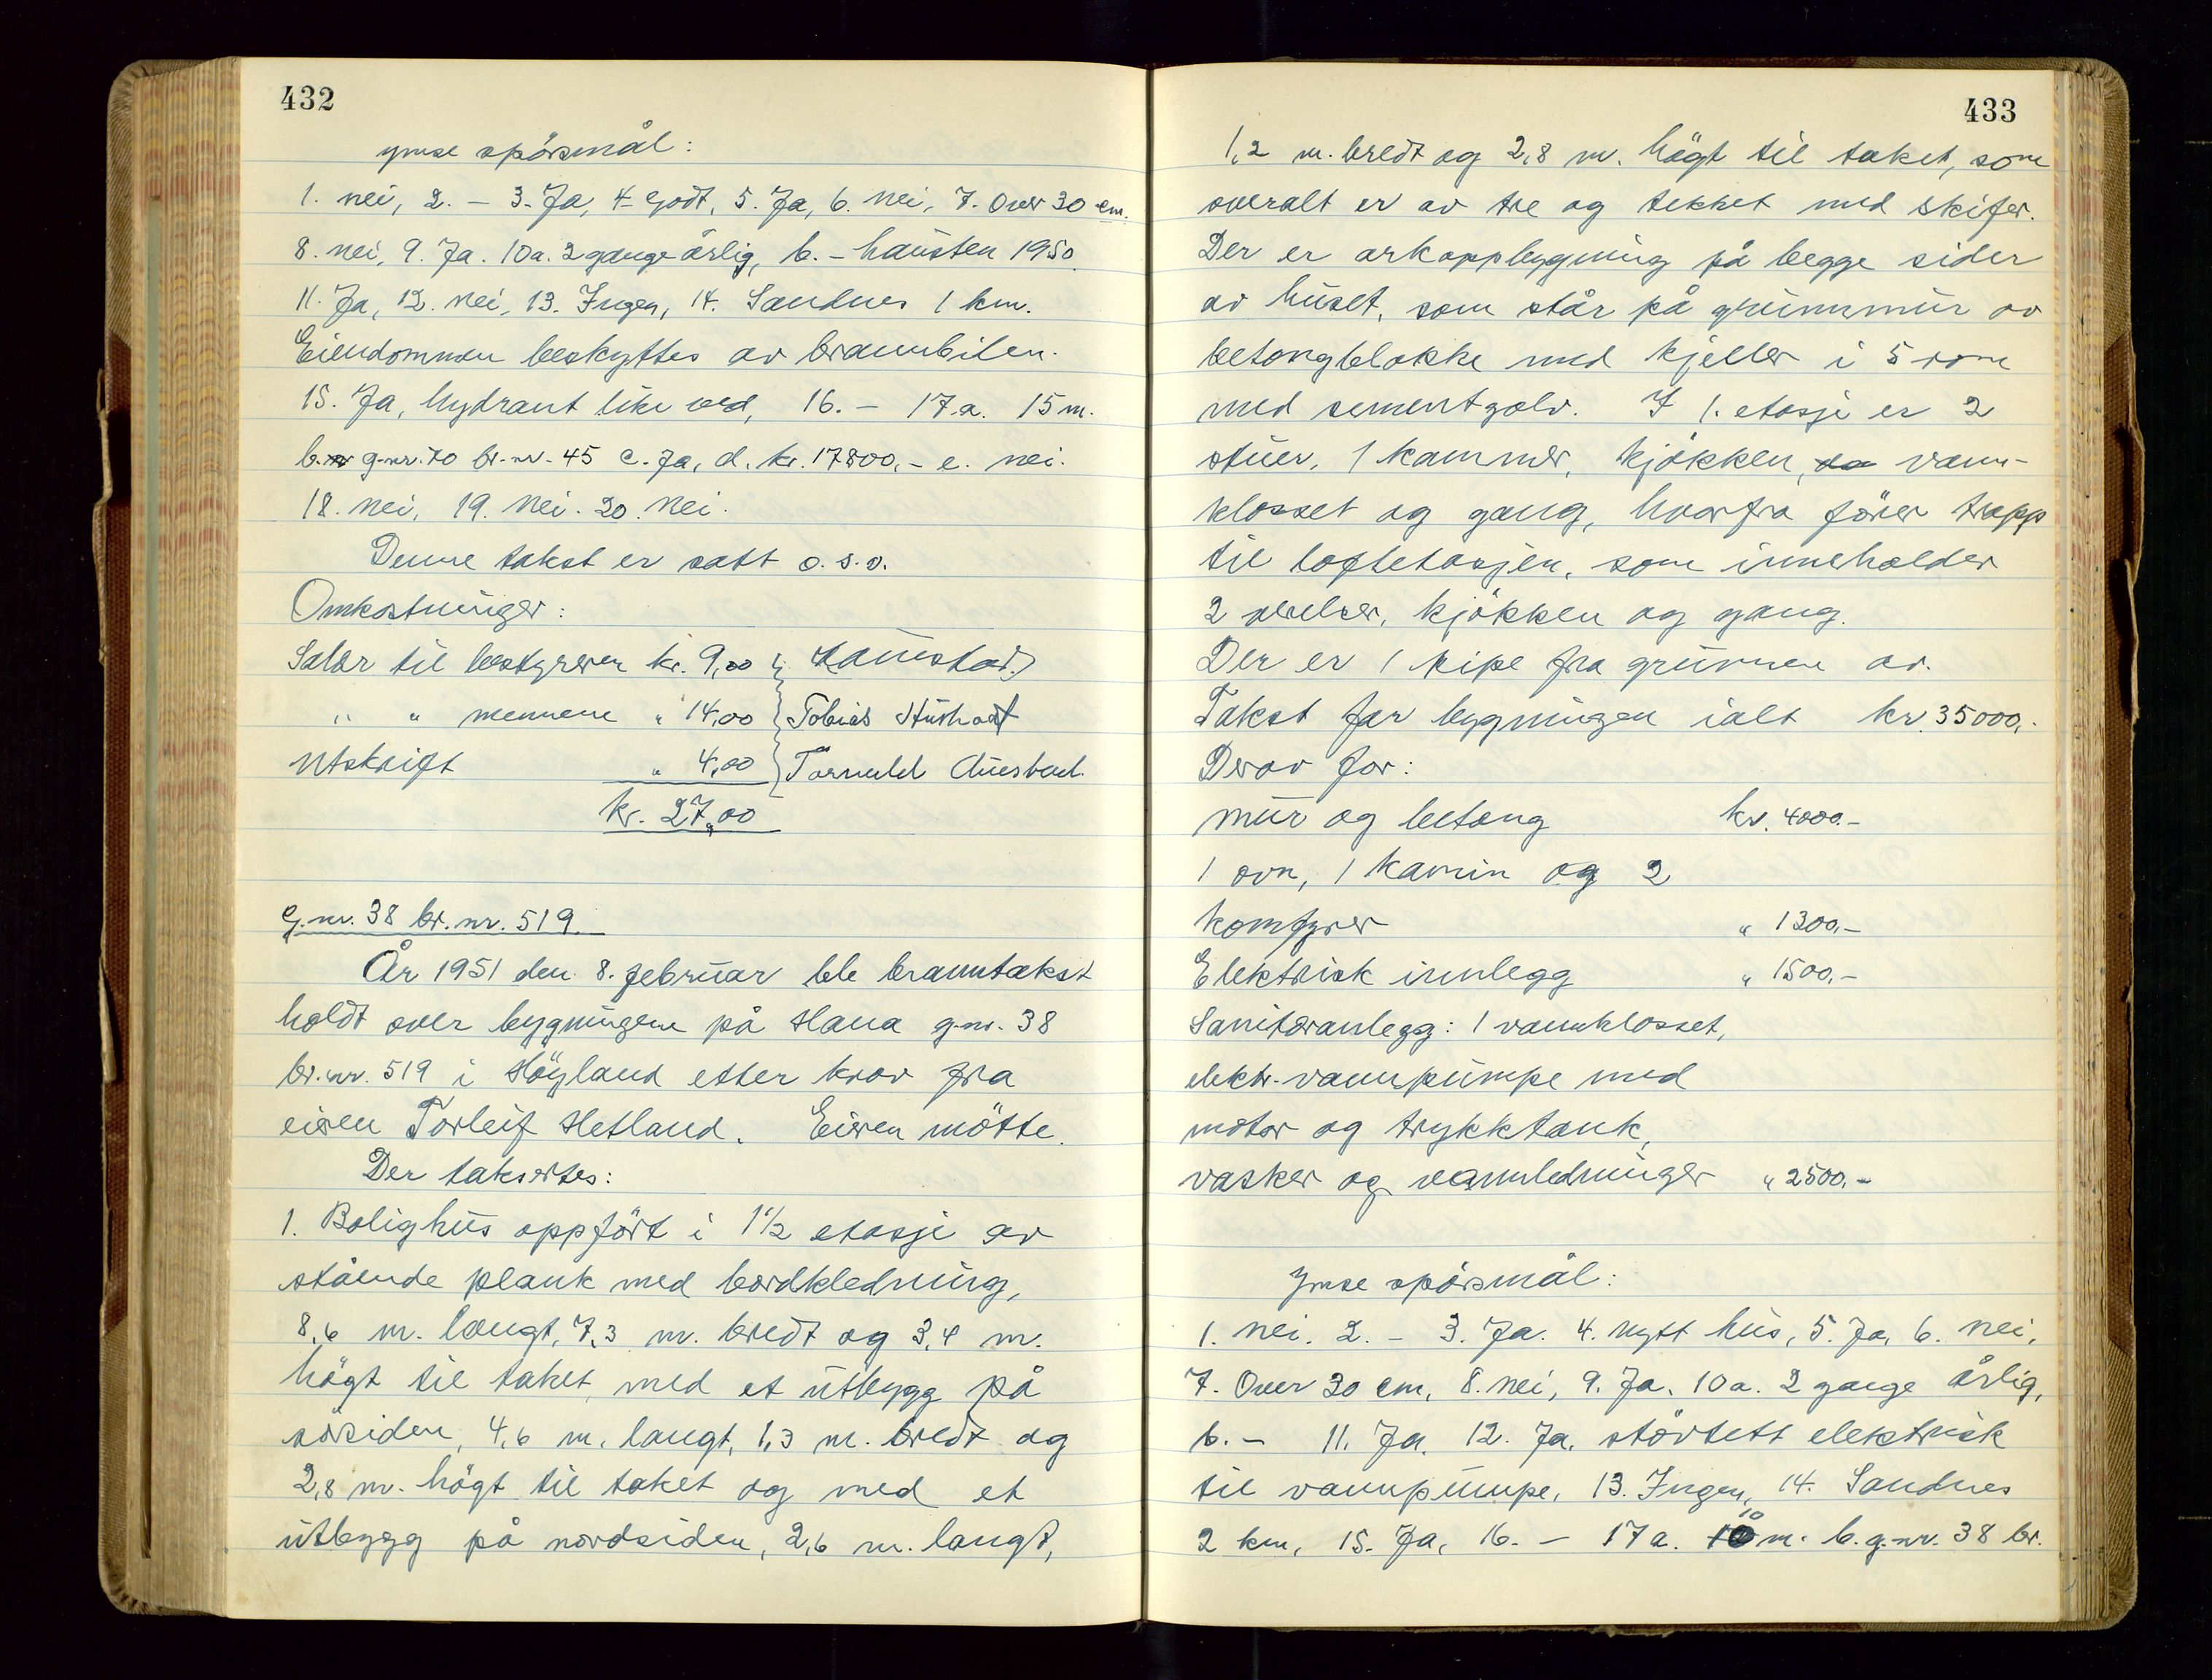 432
ymse spörsmål:
1. nei, 2. – 3. Ja, 4. Godt, 5. Ja, 6. nei, 7. Over 30 cm.
8. nei, 9. Ja. 10a. 2 gange årlig, b. – hausten 1950.
11. Ja, 12. nei, 13. Ingen, 14. Sandnes 1 km.
Eiendommen beskyttes av brannbilen.
15. Ja, hydrant like ved, 16. – 17.a. 15 m.
b. g.nr. 70 br.nr. 45 c. Ja, d. kr. 17800,- e. nei.
18. nei, 19. nei. 20. nei.
Denne takst er satt o.s.v.
Omkostninger:
Salær til bestyreren kr. 9,00
" " mennene " 14,00 Tobias
Utskrift " 4,00
kr. 27,00
G.nr. 38 br.nr. 519.
År 1951 den 8. februar ble branntakst
holdt over bygningene på Hana g.nr. 38
br.nr. 519 i Höyland etter krav fra
eieren Torleif Hetland. Eieren mötte.
Der takseres:
1. Bolighus oppfört i 1½ etasje av
stående plank med bordkledning,
8,6 m. langt, 7,3 m. bredt og 3,4 m.
högt til taket, med et utbygg på
sörsiden, 4,6 m. langt, 1,3 m. bredt og
2,8 m. högt til taket og med et
utbygg på nordsiden, 2,6 m. langt,
433
1,2 m. bredt og 2,8 m. högt til taket, som
overalt er av tre og tekket med skifer.
Der er arkoppbygning på begge sider
av huset, som står på grunnmur av
betongblokke med kjeller i 5 rom
med sementgolv. I 1. etasje er 2
stuer, 1 kammer, kjökken, vann-
klosset og gang, hvorfra förer trapp
til loftetasjen, som inneholder
2 værelser, kjökken og gang.
Der er 1 pipe fra grunnen av.
Takst for bygningen ialt kr. 35000,-
Derav for:
mur og betong kr. 4000.-
1 ovn, 1 kamin og 2
komfyrer " 1300,-
Elektrisk innlegg " 1500,-
Sanitæranlegg: 1 vannklosset,
elektr. vannpumpe med
motor og trykktank,
vasker og vannledninger " 2500,-
Ymse spörsmål:
1. nei. 2. – 3. Ja. 4. nytt hus, 5. Ja, 6. nei,
7. Over 30 cm, 8. nei, 9. Ja. 10a. 2 gange årlig,
b. – 11. Ja. 12. Ja, störtett elektrisk
til vannpumpe, 13. Ingen, 14. Sandnes
2 km, 15. Ja, 16. – 17a. 10 m. b. g.nr. 38 br.